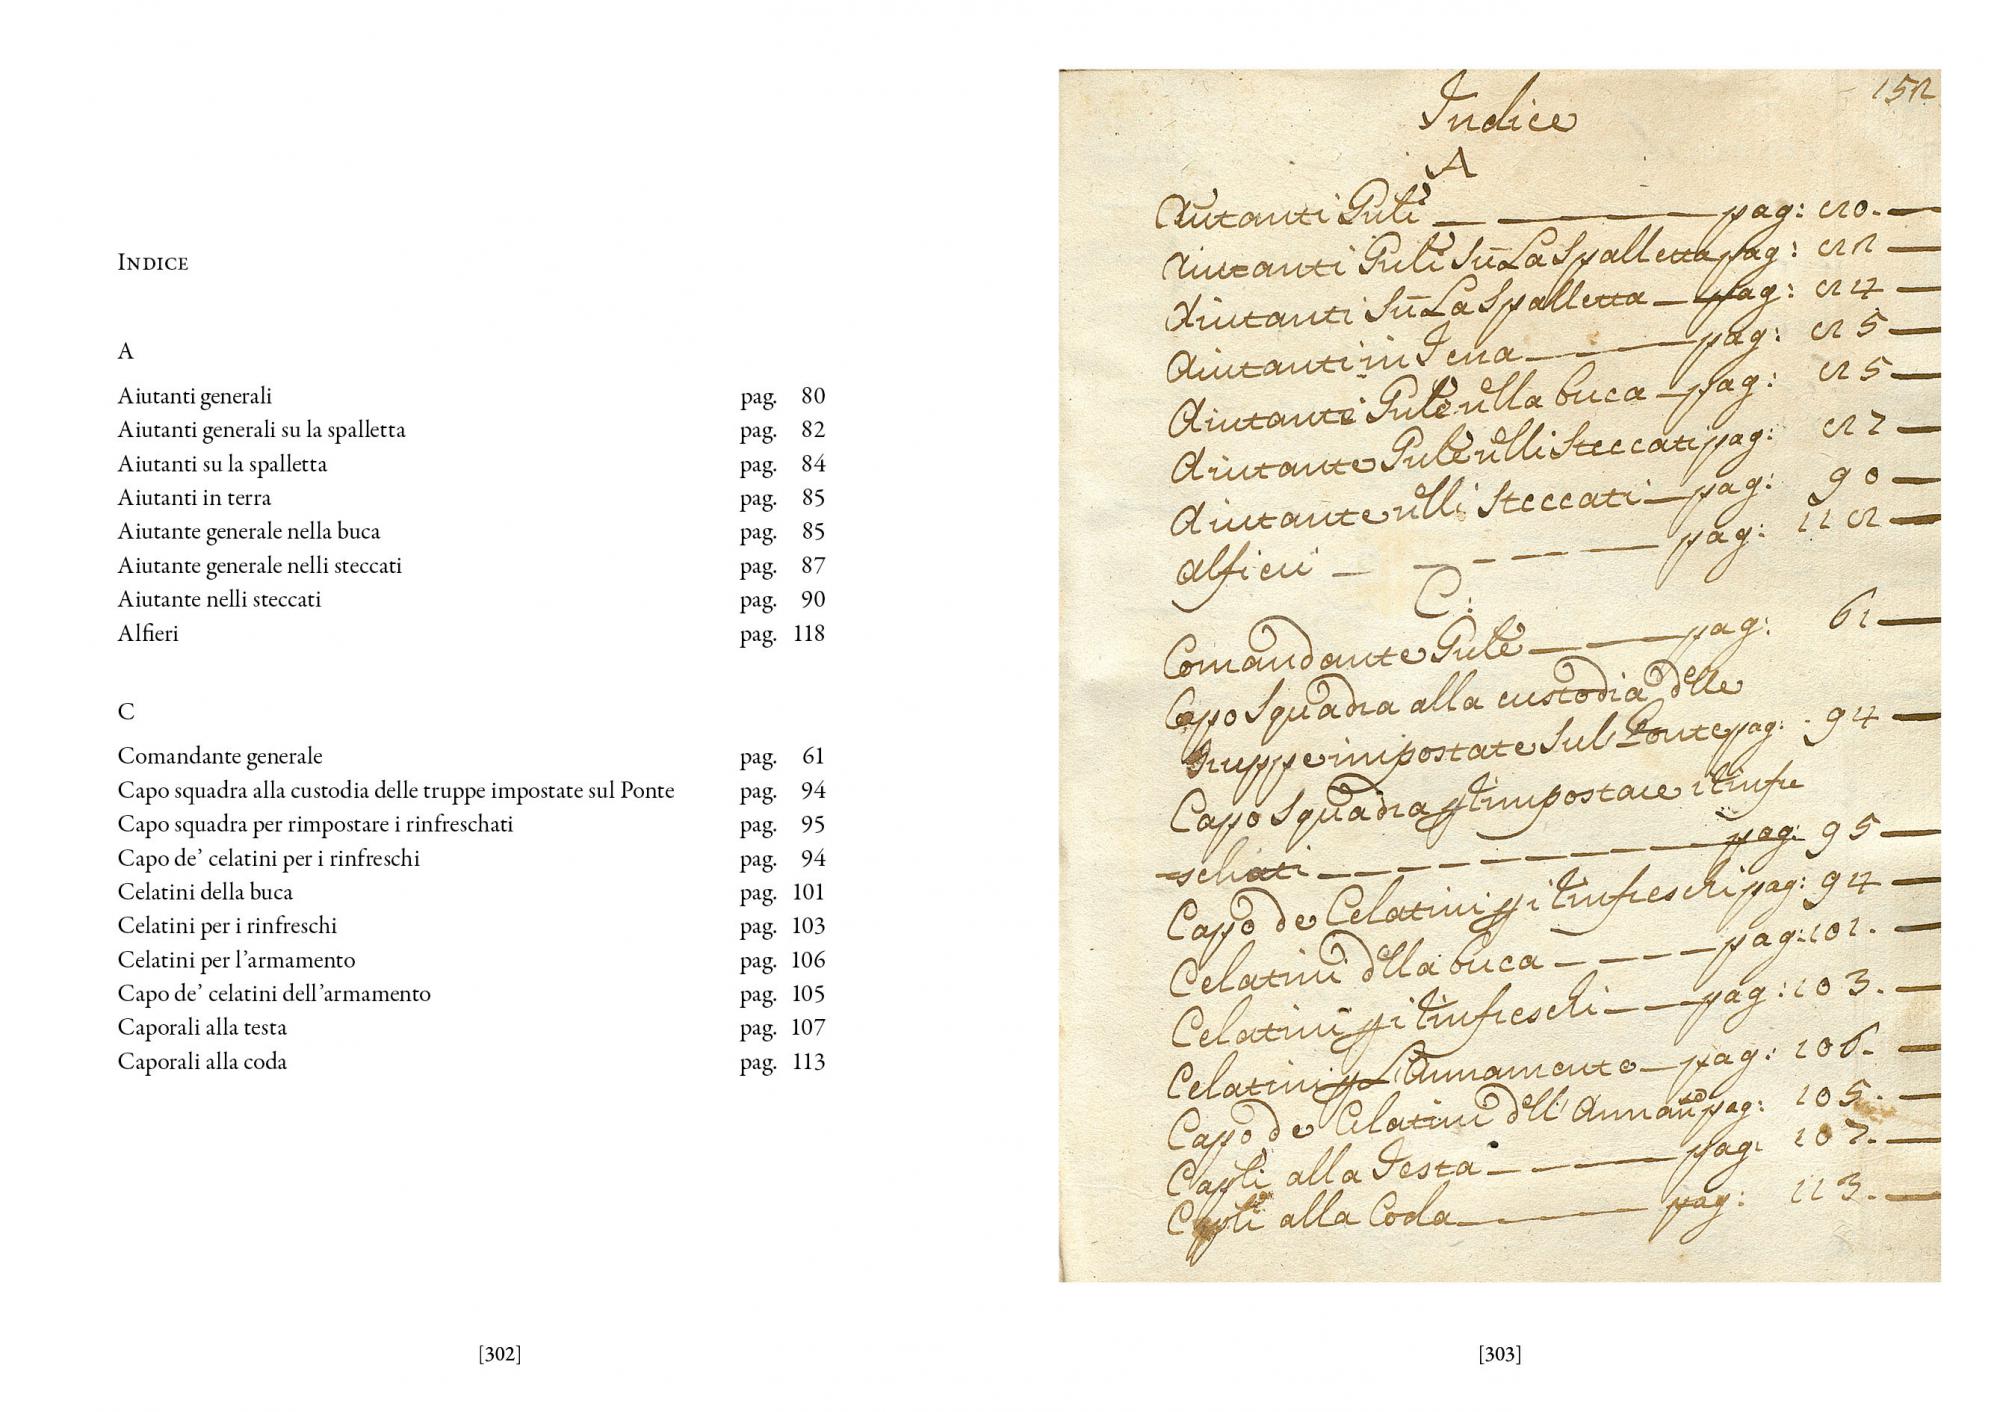 INDICE
A
Aiutanti generali pag. 80
Aiutanti generali su la spalletta pag. 82
Aiutanti su la spalletta pag. 84
Aiutanti in terra pag. 85
Aiutante generale nella buca pag. 85
Aiutante generale nelli steccati pag. 87
Aiutante nelli steccati pag. 90
Alfieri pag. 118
C
Comandante generale pag. 61
Capo squadra alla custodia delle truppe impostate sul Ponte pag. 94
Capo squadra per rimpostare i rinfreschati pag. 95
Capo de’ celatini per i rinfreschi pag. 94
Celatini della buca pag. 101
Celatini per i rinfreschi pag. 103
Celatini per l’armamento pag. 106
Capo de’ celatini dell’armamento pag. 105
Caporali alla testa pag. 107
Caporali alla coda pag. 113
[302]
152
Indice
A
Aiutanti Gnli pag: 80.
Aiutanti Gnli su La Spalletta pag: 82
Aiutanti su La Spalletta pag: 84
Aiutanti in Terra pag: 85
Aiutante Gnle nlla buca pag: 85
Aiutante Gnle nlli Steccati pag: 87
Aiutante nlli Steccati pag: 90
Alfieri pag: 118
C:
Comandante Gnle pag: 61
Capo Squadra alla custodia dlle
Truppe impostate sul Ponte pag: 94
Capo Squadra p rimpostare i rinfre
schati pag: 95
Capo de Celatini p i rinfreschi pag: 94
Celatini dlla buca pag: 101.
Celatini p i rinfreschi pag: 103.
Celatini p L'Armamento pag: 106.
Capo de Celatini dell'Armamto pag: 105.
Capli alla Testa pag: 107.
Capli alla Coda pag: 113.
[303]